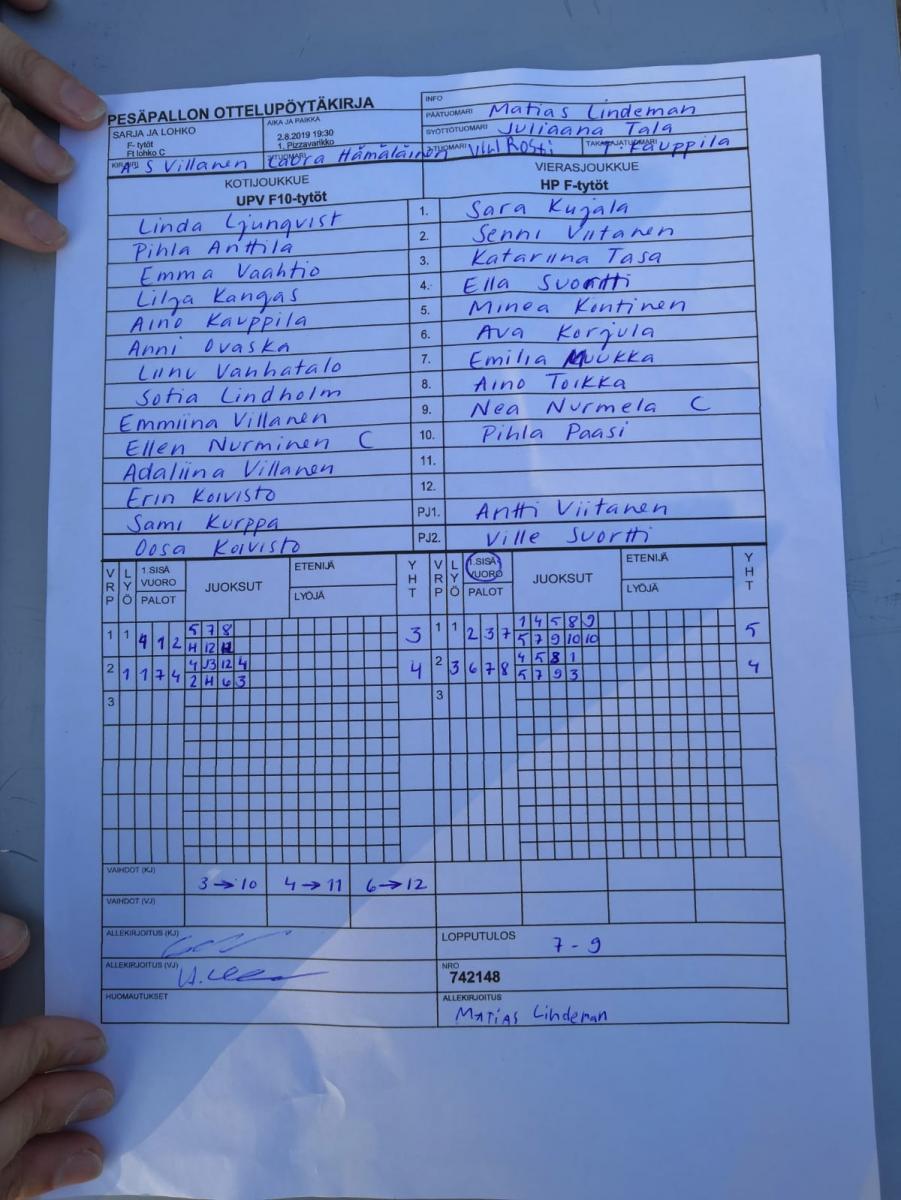 PESÄPALLON OTTELUPÖYTÄKIRJA
INFO
SARJA JA LOHKO
F- tytöt
Ft lohko C
AIKA JA PAIKKA
2.8.2019 19:30
1. Pizzavarikko
PÄÄTUOMARI Matias Lindeman
SYÖTTÖTUOMARI Juliaana Tala
KIRJURI A-S Villanen
2-TUOMARI Laura Hämäläinen
3-TUOMARI Vili Rosti
TAKARAJATUOMARI T Kauppila
KOTIJOUKKUE
UPV F10-tytöt
VIERASJOUKKUE
HP F-tytöt
Linda Ljunqvist 1. Sara Kujala
Pihla Anttila 2. Senni Viitanen
Emma Vaahtio 3. Katariina Tasa
Lilja Kangas 4. Ella Suortti
Aino Kauppila 5. Minea Kontinen
Anni Ovaska 6. Ava Korjula
Liinu Vanhatalo 7. Emilia Muukka
Sofia Lindholm 8. Aino Toikka
Emmiina Villanen 9. Nea Nurmela C
Ellen Nurminen C 10. Pihla Paasi
Adaliina Villanen 11.
Erin Koivisto 12.
Sami Kurppa PJ1. Antti Viitanen
Oosa Koivisto PJ2. Ville Suortti
VRP LYÖ 1.SISÄ VUORO PALOT JUOKSUT ETENIJÄ LYÖJÄ YHT VRP LYÖ 1.SISÄ VUORO PALOT JUOKSUT ETENIJÄ LYÖJÄ YHT
1 1 4 1 2 5 7 8 3 1 1 2 3 7 1 4 5 8 9 5
12 5 7 9 10 10
2 1 1 7 4 4 12 4 4 2 3 6 7 8 4 5 8 1 4
2 6 3 5 7 9 3
3 3
VAIHDOT (KJ) 3→10 4→11 6→12
VAIHDOT (VJ)
ALLEKIRJOITUS (KJ)
LOPPUTULOS 7-9
ALLEKIRJOITUS (VJ)
NRO
742148
HUOMAUTUKSET
ALLEKIRJOITUS
Matias Lindeman